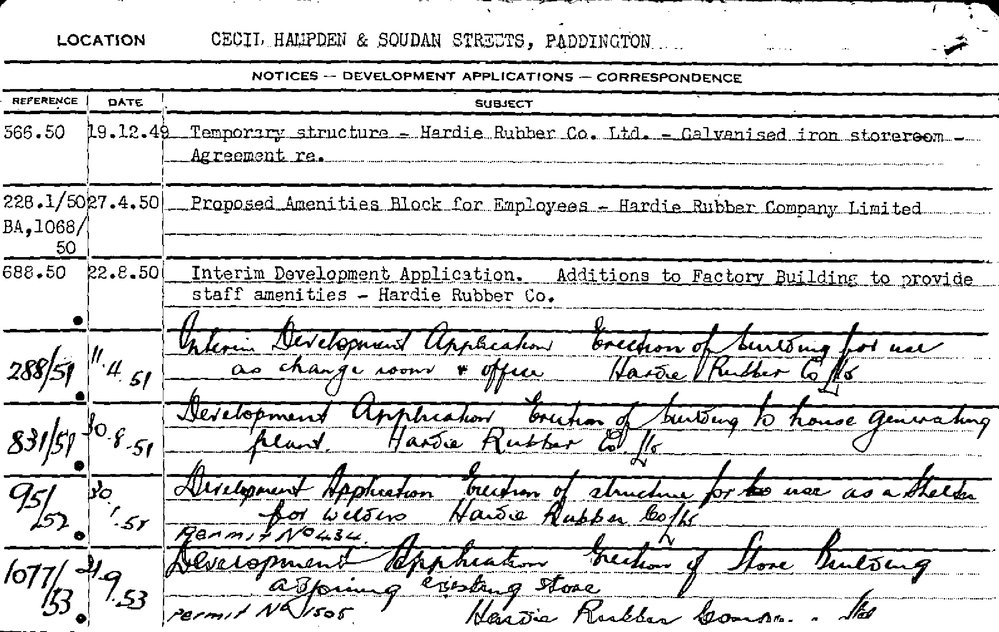 LOCATION CECIL, HAMPDEN & SOUDAN STREETS, PADDINGTON
NOTICES — DEVELOPMENT APPLICATIONS — CORRESPONDENCE
REFERENCE DATE SUBJECT
566.50 19.12.49 Temporary structure - Hardie Rubber Co. Ltd. - Galvanised iron storeroom -
Agreement re.
228.1/50 27.4.50 Proposed Amenities Block for Employees - Hardie Rubber Company Limited
BA,1068/
50
688.50 22.8.50 Interim Development Application. Additions to Factory Building to provide
staff amenities - Hardie Rubber Co.
Interim Development Application Erection of building for use
288/51 11.4.51 as change room & office Hardie Rubber Co
Development Application Erection of building to house generating
831/51 30.8.51 plant. Hardie Rubber Co.
95/52 30.1.52 Development Application Erection of structure for use as a Shelter
for Welders Hardie Rubber Co
Permit No 434.
Development Application Erection of Store Building
1077/53 9.53 adjoining existing store
Permit No 1505 Hardie Rubber